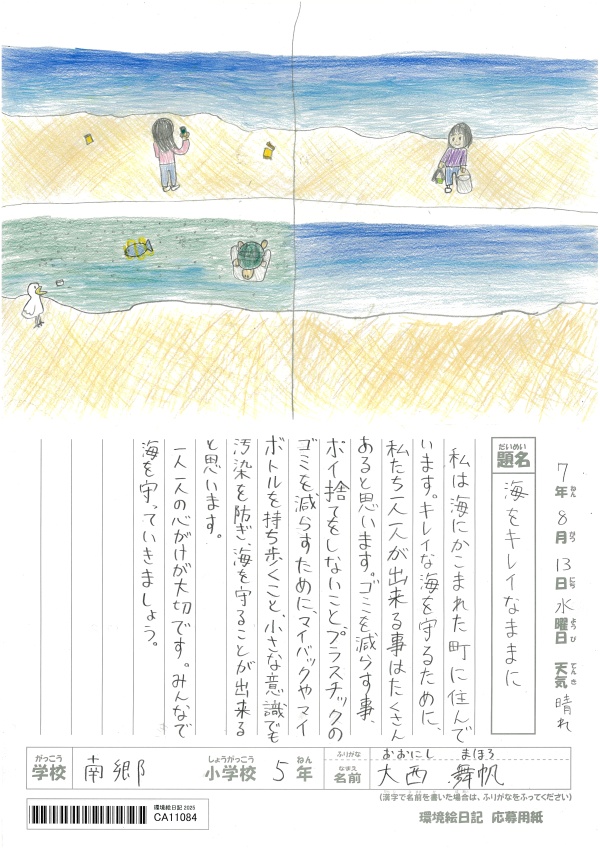 7年ねん8月がつ13日にち水曜日ようび 天気てんき 晴れ
題名だいめい 海をキレイなままに
私は海にかこまれた町に住んで
います。キレイな海を守るために、
私たち一人一人が出来る事はたくさん
あると思います。ゴミを減らす事、
ポイ捨てをしないこと、プラスチックの
ゴミを減らすために、マイバックやマイ
ボトルを持ち歩くこと、小さな意識でも
汚染を防ぎ、海を守ることが出来る
と思います。
一人一人の心がけが大切です。みんなで
海を守っていきましょう。
がっこう しょうがっこう ねん ふりがな おおにし まほろ
学校 南郷 小学校 5年 なまえ 名前 大西 舞帆
(漢字で名前を書いた場合は、ふりがなをふってください)
環境絵日記 2025
CA11084
環境絵日記 応募用紙